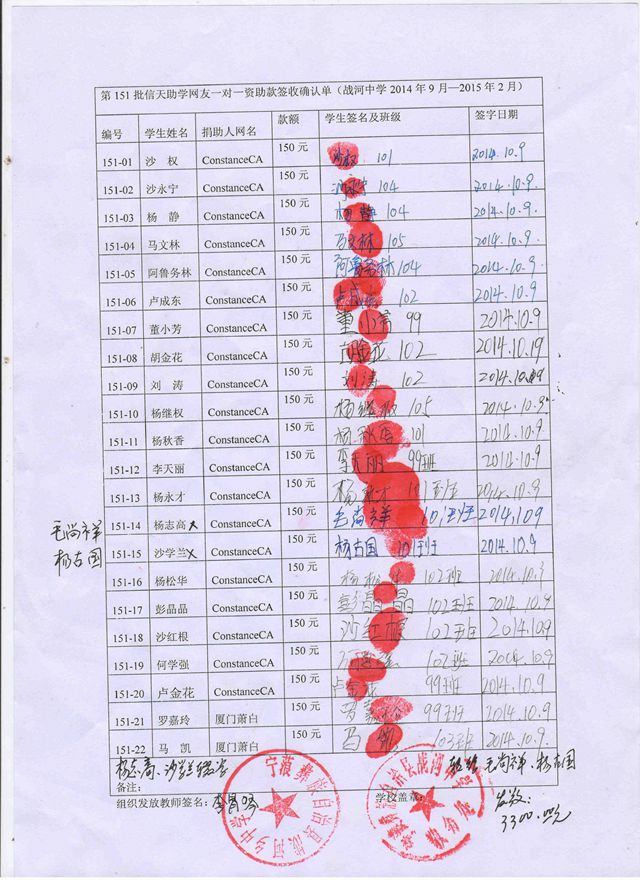 第 151 批信天助学网友一对一资助款签收确认单（战河中学 2014 年 9 月—2015 年 2 月）
编号 学生姓名 捐助人网名 款额 学生签名及班级 签字日期
151-01 沙 权 ConstanceCA 150 元 沙权 101 2014.10.9
151-02 沙永宁 ConstanceCA 150 元 沙永宁 104 2014.10.9.
151-03 杨 静 ConstanceCA 150 元 杨静 104 2014.10.9.
151-04 马文林 ConstanceCA 150 元 马文林 105 2014.10.9.
151-05 阿鲁务林 ConstanceCA 150 元 阿鲁务林 104 2014.10.9
151-06 卢成东 ConstanceCA 150 元 卢成东 102 2014.10.9
151-07 董小芳 ConstanceCA 150 元 董小芳 99 2014.10.9
151-08 胡金花 ConstanceCA 150 元 102 2014.10.19
151-09 刘 涛 ConstanceCA 150 元 刘涛 102 2014.10.9
151-10 杨继权 ConstanceCA 150 元 杨继权 105 2014.10.9
151-11 杨秋香 ConstanceCA 150 元 杨秋香 101 2014.10.9
151-12 李天丽 ConstanceCA 150 元 李天丽 99班 2014.10.9
151-13 杨永才 ConstanceCA 150 元 杨永才 101班 2014.10.9
毛尚祥
151-14 杨志高 x ConstanceCA 150 元 毛尚祥 101班 2014.10.9
杨古国
151-15 沙学兰 x ConstanceCA 150 元 杨古国 101班 2014.10.9.
151-16 杨松华 ConstanceCA 150 元 杨松华 102班 2014.10.9
151-17 彭晶晶 ConstanceCA 150 元 彭晶晶 102班 2014.10.9
151-18 沙红根 ConstanceCA 150 元 沙红根 102班 2014.10.9
151-19 何学强 ConstanceCA 150 元 何学强 102班 2014.10.9
151-20 卢金花 ConstanceCA 150 元 卢金花 99班 2014.10.9
151-21 罗嘉玲 厦门萧白 150 元 罗嘉玲 99班 2014.10.9
151-22 马 凯 厦门萧白 150 元 马凯 103班 2014.10.9.
杨志高、沙学兰 毛尚祥、杨古国
备注：
组织发放教师签名： 学校盖章：
发放：
3300.00元
宁蒗彝族自治县战河乡中学